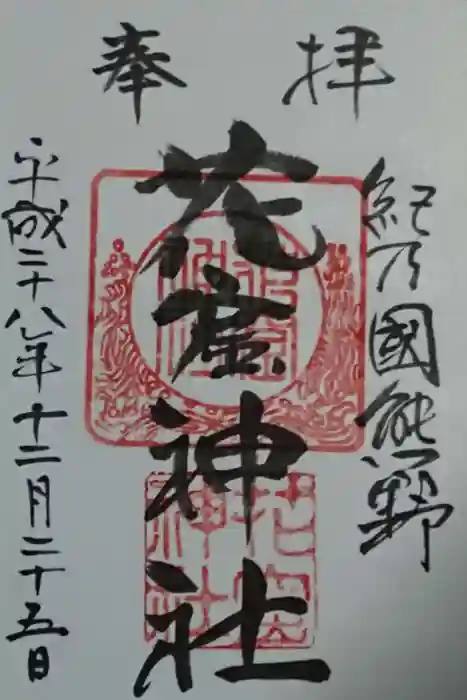 奉拝
紀乃國熊野
花窟神社
平成二十八年十二月二十五日
花窟
神社